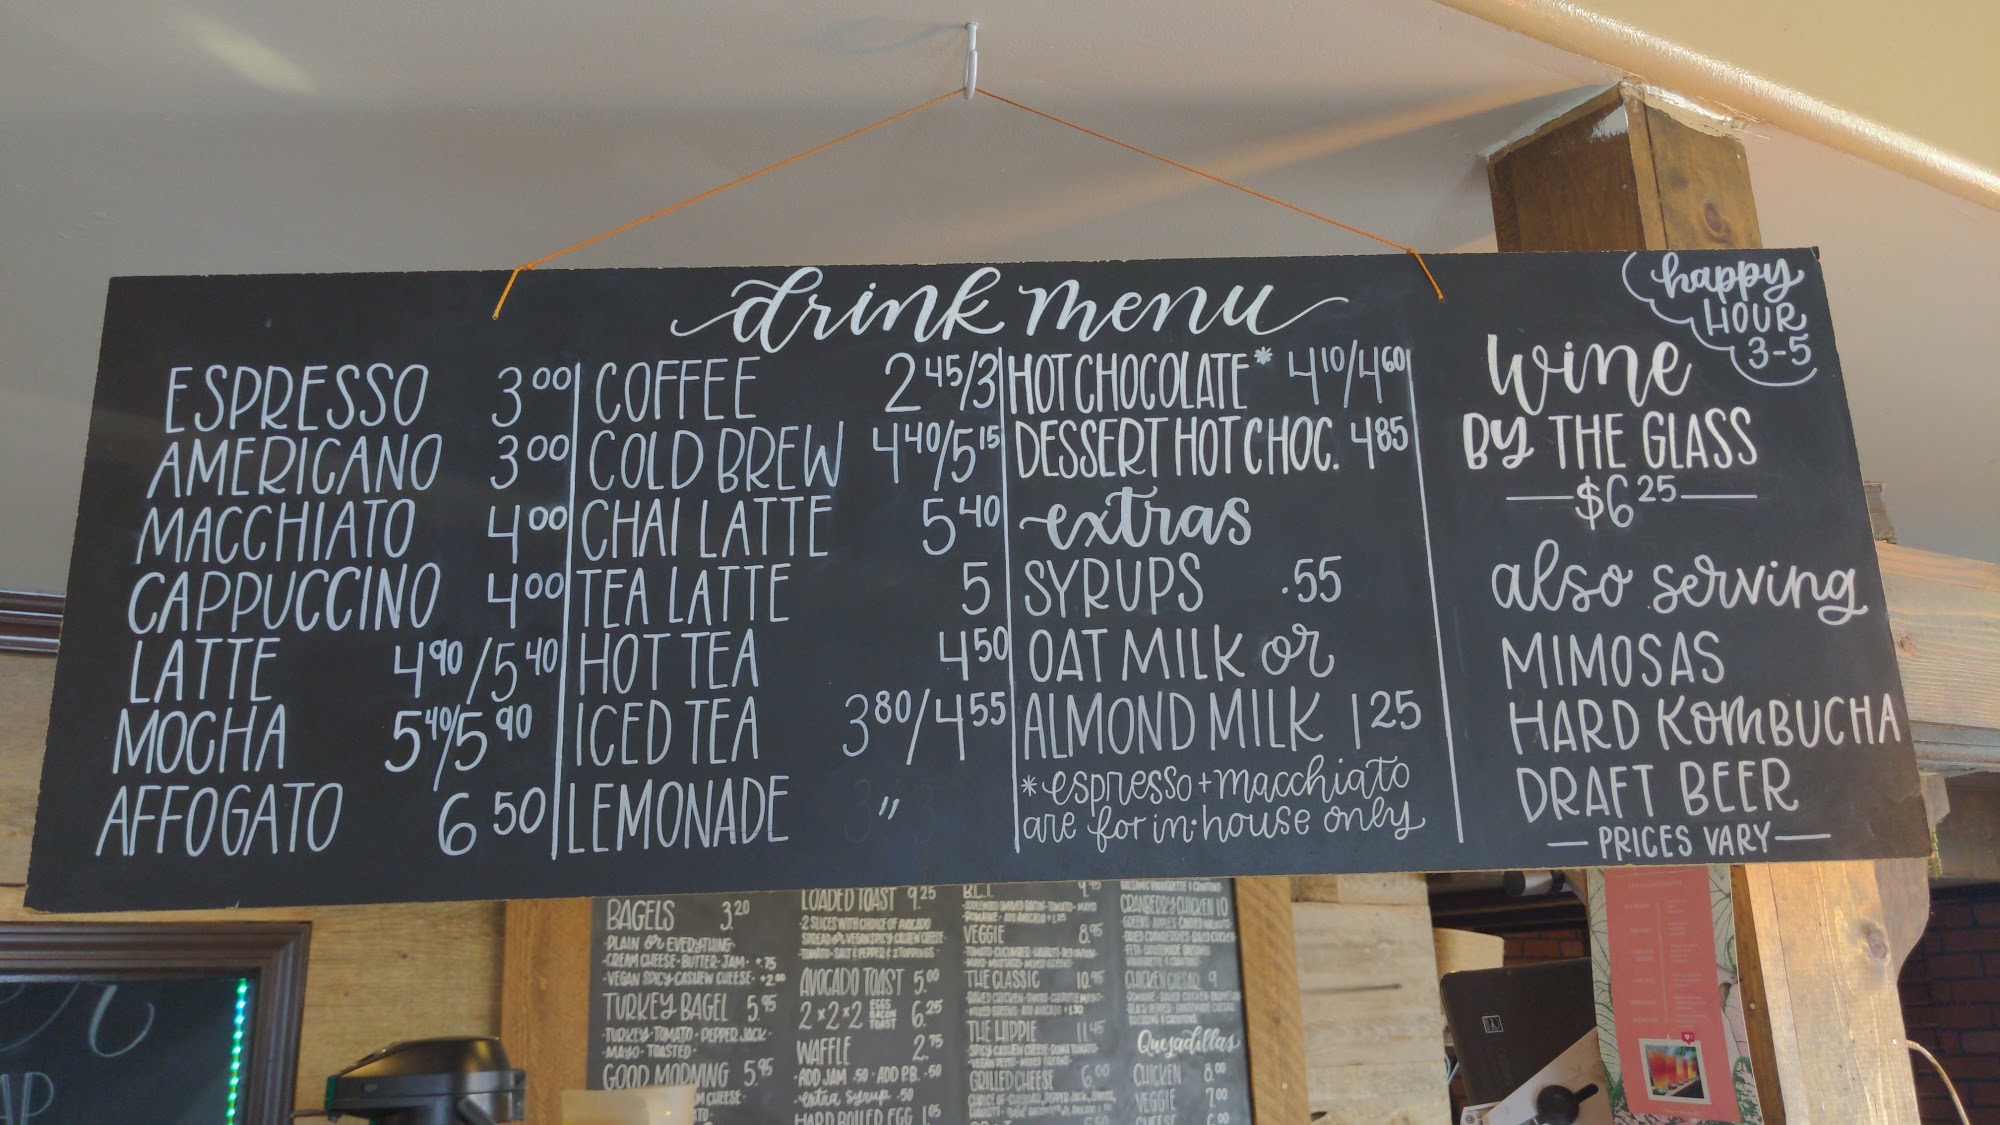 drink menu
ESPRESSO 3.00
AMERICANO 3.00
MACCHIATO 4.00
CAPPUCCINO 4.00
LATTE 4.90/5.40
MOCHA 5.40/5.90
AFFOGATO 6.50
COFFEE 2.45/3
COLD BREW 4.40/5.15
CHAI LATTE 5.40
TEA LATTE 5
HOT TEA 4.50
ICED TEA 3.80/4.55
LEMONADE "
HOT CHOCOLATE* 4.10/4.60
DESSERT HOT CHOC. 4.85
extras
SYRUPS .55
OAT MILK or
ALMOND MILK 1.25
*espresso + macchiato
are for in-house only
happy
HOUR
3-5
wine
By THE GLASS
$6.25
also serving
MIMOSAS
HARD KOMBUCHA
DRAFT BEER
PRICES VARY
BAGELS 3.20
-PLAIN or EVERYTHING-
-CREAM CHEESE-BUTTER-JAM- +.75
-VEGAN SPICY CASHEW CHEESE- +2.00
TURKEY BAGEL 5.95
-TURKEY-TOMATO-PEPPER JACK-
-MAYO-TOASTED-
GOOD MORNING 5.95
M CHEESE-
LOADED TOAST 9.25
-2 SLICES WITH CHOICE OF AVOCADO
SPREAD or VEGAN SPICY CASHEW CHEESE-
AVOCADO TOAST 5.00
2x2x2 EGGS BACON TOAST 6.25
WAFFLE 2.75
-ADD JAM .50 -ADD P.B. .50
extra syrup .50
HARD BOILED EGG 1.05
B.L.T. 9.95
VEGGIE 8.95
THE CLASSIC 10.95
THE HIPPIE 11.45
GRILLED CHEESE 6.00
CRANBERRY CHICKEN 10
CHICKEN CAESAR 9
Quesadillas
CHICKEN 8.00
VEGGIE 7.00
CHEESE
AP